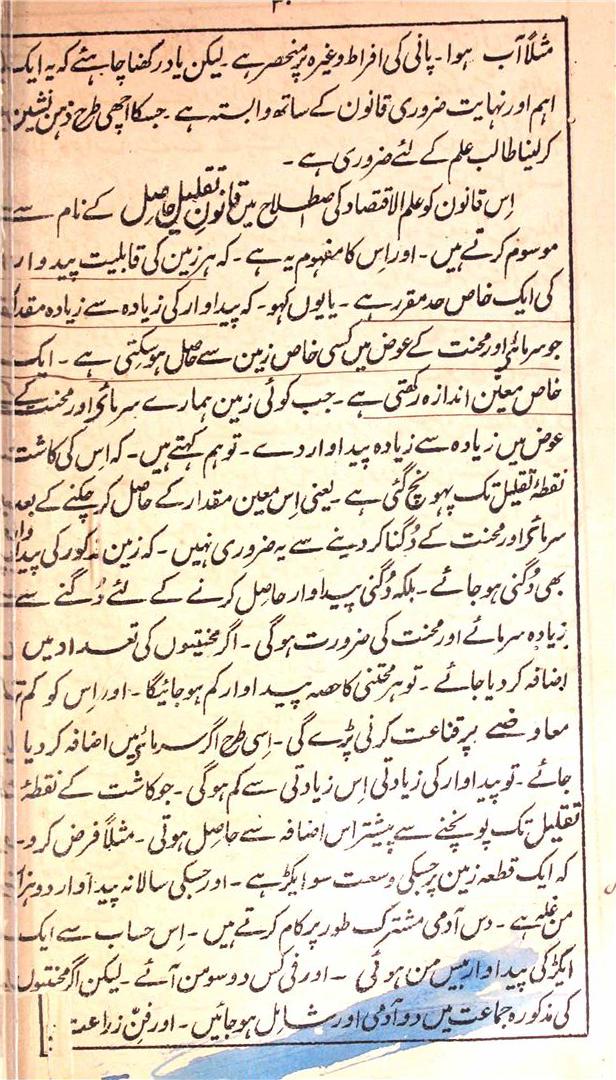 ۲۰
مثلاً آب ہوا۔ پانی کی افراط وغیرہ پر منحصر ہے۔ لیکن یاد رکھنا چاہئے کہ یہ ایک
اہم اور نہایت ضروری قانون کے ساتھ وابستہ ہے۔ جسکا اچھی طرح ذہن نشین
کر لینا طالب علم کے لئے ضروری ہے۔
اِس قانون کو علم الاقتصاد کی اصطلاح میں قانونِ تقلیلِ حاصل کے نام سے
موسوم کرتے ہیں۔ اور اِس کا مفہوم یہ ہے۔ کہ ہر زمین کی قابلیت پیداوار
کی ایک خاص حد مقرر ہے۔ یا یوں کہو۔ کہ پیداوار کی زیادہ سے زیادہ مقدار
جو سرمائے اور محنت کے عوض میں کسی خاص زمین سے حاصل ہو سکتی ہے۔ ایک
خاص معیّن اندازہ رکھتی ہے۔ جب کوئی زمین ہمارے سرمائے اور محنت کے
عوض میں زیادہ سے زیادہ پیداوار دے۔ تو ہم کہتے ہیں۔ کہ اس کی کاشت
نقطۂ تقلیل تک پہونچ گئی ہے۔ یعنی اِس معین مقدار کے حاصل کر چکنے کے بعد
سرمائے اور محنت کے دُگنا کر دینے سے یہ ضروری نہیں۔ کہ زمین مذکور کی پیداوار
بھی دُگنی ہو جائے۔ بلکہ دُگنی پیداوار حاصل کرنے کے لئے دُگنے سے
زیادہ سرمائے اور محنت کی ضرورت ہوگی۔ اگر محنتیوں کی تعداد میں
اضافہ کر دیا جائے۔ تو ہر محنتی کا حصہ پیداوار کم ہو جائیگا۔ اور اِس کو کم
معاوضے پر قناعت کرنی پڑے گی۔ اِسی طرح اگر سرمائے میں اضافہ کر دیا
جائے۔ تو پیداوار کی زیادتی اِس زیادتی سے کم ہوگی۔ جو کاشت کے نقطۂ
تقلیل تک پونچنے سے پیشتر اس اضافہ سے حاصل ہوتی۔ مثلاً فرض کرو۔
کہ ایک قطعہ زمین پر جسکی وسعت سو ایکڑ ہے۔ اور جسکی سالانہ پیداوار دو ہزار
من غلہ ہے۔ دس آدمی مشترک طور پر کام کرتے ہیں۔ اِس حساب سے ایک
ایکڑ کی پیداوار بیس من ہوئی۔ اور فی کس دو سو من آئے۔ لیکن اگر محنتیوں
کی مذکورہ جماعت میں دو آدمی اور شامل ہو جائیں۔ اور فنِّ زراعت